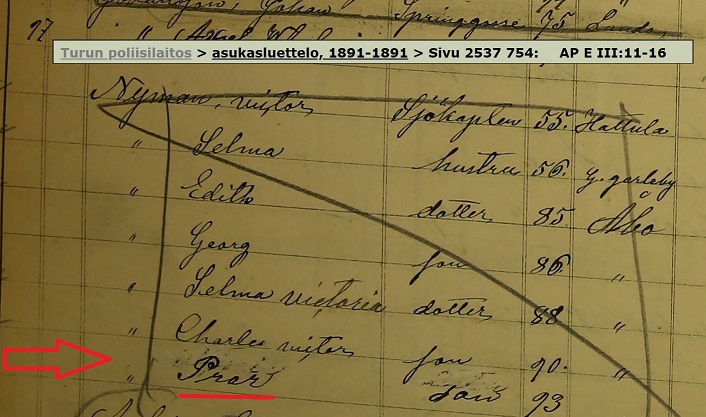 Springgosse 75 Lundo
97 "
Turun poliisilaitos > asukasluettelo, 1891-1891 > Sivu 2537 754: AP E III:11-16
Nyman, victor Sjökapten 55. Hattula
" Selma hustru 56. g. garleby
" Edith dotter 85 Åbo
" Georg son 86. "
" Selma victoria dotter 88 "
" Charles victor son 90. "
" son 93